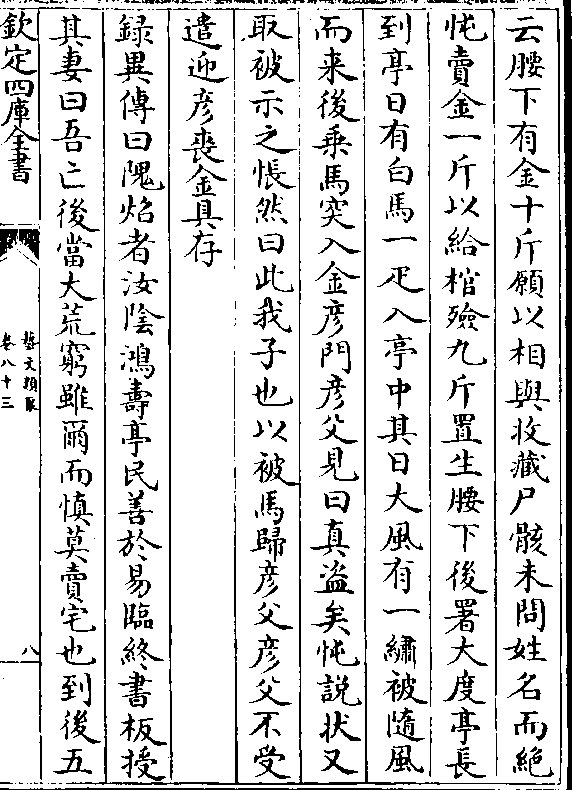 云腰下有金十斤願以相與收藏尸骸未問姓名而絶
忳賣金一斤以給棺殮九斤置生腰下後署大度亭長
到亭日有白馬一疋入亭中其日大風有一繡被隨風
而来後乗馬突入金彦門彦父見曰真盗矣忳説状又
取被示之悵然曰此我子也以被馬歸彦父彦父不受
遣迎彦喪金具存
録異傳曰隗炤者汝隂鴻壽亭民善於易臨終書板授
其妻曰吾亡後當大荒窮雖爾而慎莫賣宅也到後五
欽定四庫全書
藝文類聚
卷八十三
八